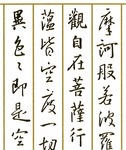 摩訶般若波羅
觀自在菩薩行
薀皆空度一切
異色々即是空